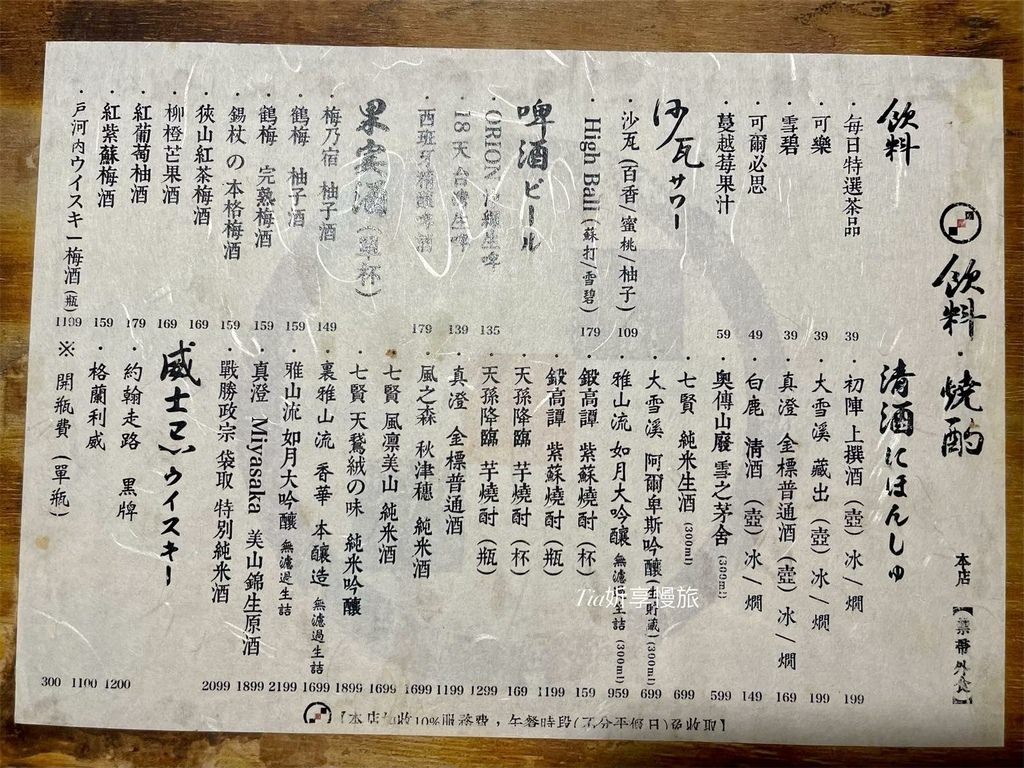 飲料・燒酌
本店【禁帶外食】
飲料
・每日特選茶品 39
・可樂 39
・雪碧 39
・可爾必思 49
・蔓越莓果汁 59
沙瓦サワー
・沙瓦(百香/蜜桃/柚子) 109
・High Ball(蘇打/雪碧) 179
啤酒ビール
・ORION 沖繩生啤 135
・18天台灣生啤 139
・西班牙精釀啤酒 179
果実酒(單杯)
・梅乃宿 柚子酒 149
・鶴梅 柚子酒 159
・鶴梅 完熟梅酒 159
・錫杖の本格梅酒 159
・狹山紅茶梅酒 169
・柳橙芒果酒 169
・紅葡萄柚酒 179
・紅紫蘇梅酒 159
・戸河内ウイスキー梅酒(瓶) 1199
清酒にほんしゅ
・初陣上撰酒(壺)冰/燗 199
・大雪溪 藏出(壺)冰/燗 199
・真澄 金標普通酒(壺)冰/燗 169
・白鹿 清酒(壺)冰/燗 149
・奧傳山廢 雪之茅舍(300ml) 599
・七賢 純米生酒(300ml) 699
・大雪溪 阿爾卑斯吟釀(生貯藏)(300ml) 699
・雅山流 如月大吟釀 無濾過生詰(300ml) 959
・鍛高譚 紫蘇燒酎(杯) 159
・鍛高譚 紫蘇燒酎(瓶) 1199
・天孫降臨 芋燒酎(杯) 169
・天孫降臨 芋燒酎(瓶) 1299
・真澄 金標普通酒 1199
・風之森 秋津穗 純米酒 1699
・七賢 風凛美山 純米酒 1699
・七賢 天鵞絨の味 純米吟釀 1899
・裏雅山流 香華 本釀造 無濾過生詰 1699
・雅山流 如月大吟釀 無濾過生詰 2199
・真澄 Miyasaka 美山錦生原酒 1899
・戰勝政宗 袋取 特別純米酒 2099
威士忌ウイスキー
・約翰走路 黑牌 1200
・格蘭利威 1100
※開瓶費(單瓶) 300
Tia妍享慢旅